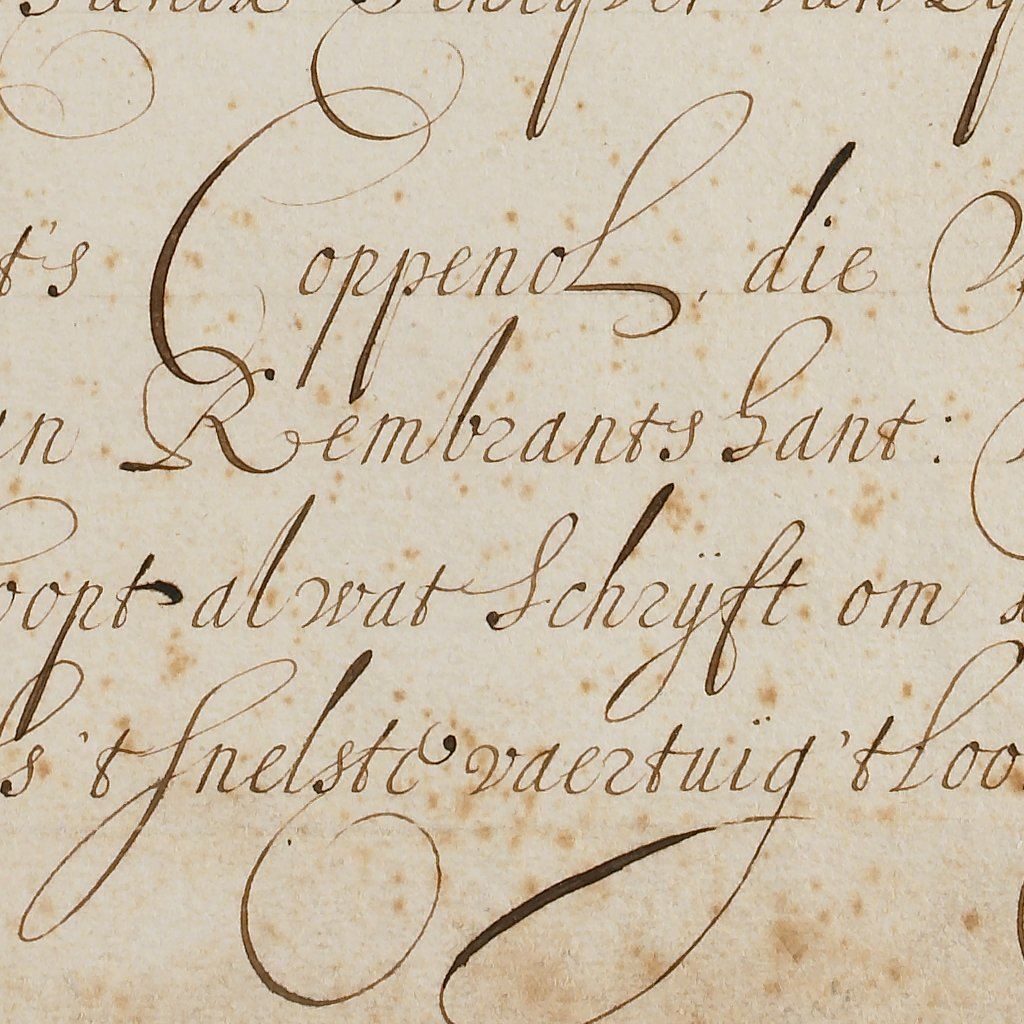 t's Coppenol, die
Rembrants hant:
loopt al wat schrÿft om
's 't snelste vaertuig 't Loo